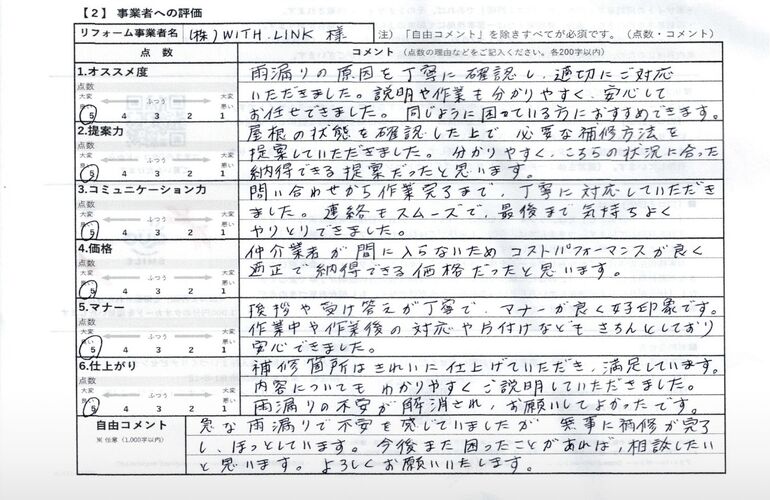 【2】事業者への評価
リフォーム事業者名 (株)WITH.LINK 様 注)「自由コメント」を除きすべてが必須です。(点数・コメント)
点数 コメント (点数の理由などをご記入ください。各200字以内)
1.オススメ度
点数
大変良い ふつう 大変悪い
5 4 3 2 1
雨漏りの原因を丁寧に確認し、適切にご対応
いただきました。説明や作業も分かりやすく、安心して
お任せできました。同じように困っている方におすすめできます。
2.提案力
点数
大変良い ふつう 大変悪い
5 4 3 2 1
屋根の状態を確認した上で必要な補修方法を
提案していただきました。分かりやすく、こちらの状況に合った
納得できる提案だったと思います。
3.コミュニケーション力
点数
大変良い ふつう 大変悪い
5 4 3 2 1
問い合わせから作業完了まで、丁寧に対応していただき
ました。連絡もスムーズで、最後まで気持ちよく
やりとりできました。
4.価格
点数
大変良い ふつう 大変悪い
5 4 3 2 1
仲介業者が間に入らないためコストパフォーマンスが良く
適正で納得できる価格だったと思います。
5.マナー
点数
大変良い ふつう 大変悪い
5 4 3 2 1
挨拶や受け答えが丁寧で、マナーが良く好印象です。
作業中や作業後の対応や片付けなどもきちんとしており
安心できました。
6.仕上がり
点数
大変良い ふつう 大変悪い
5 4 3 2 1
補修箇所はきれいに仕上げていただき、満足しています。
内容についてもわかりやすくご説明していただきました。
雨漏りの不安が解消され、お願いしてよかったです。
自由コメント
※任意(1,000字以内)
急な雨漏りで不安を感じていましたが 無事に補修が完了
し、ほっとしています。今後また困ったことがあれば、相談したい
と思います。よろしくお願いいたします。